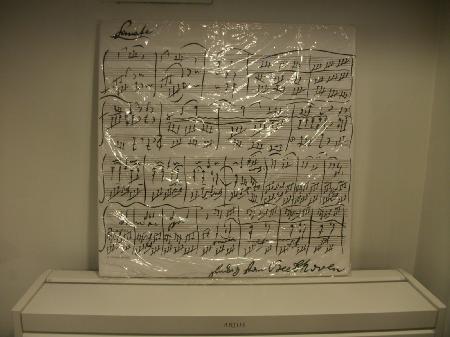 Sonate
Ludwig van Beethoven
ARIUS